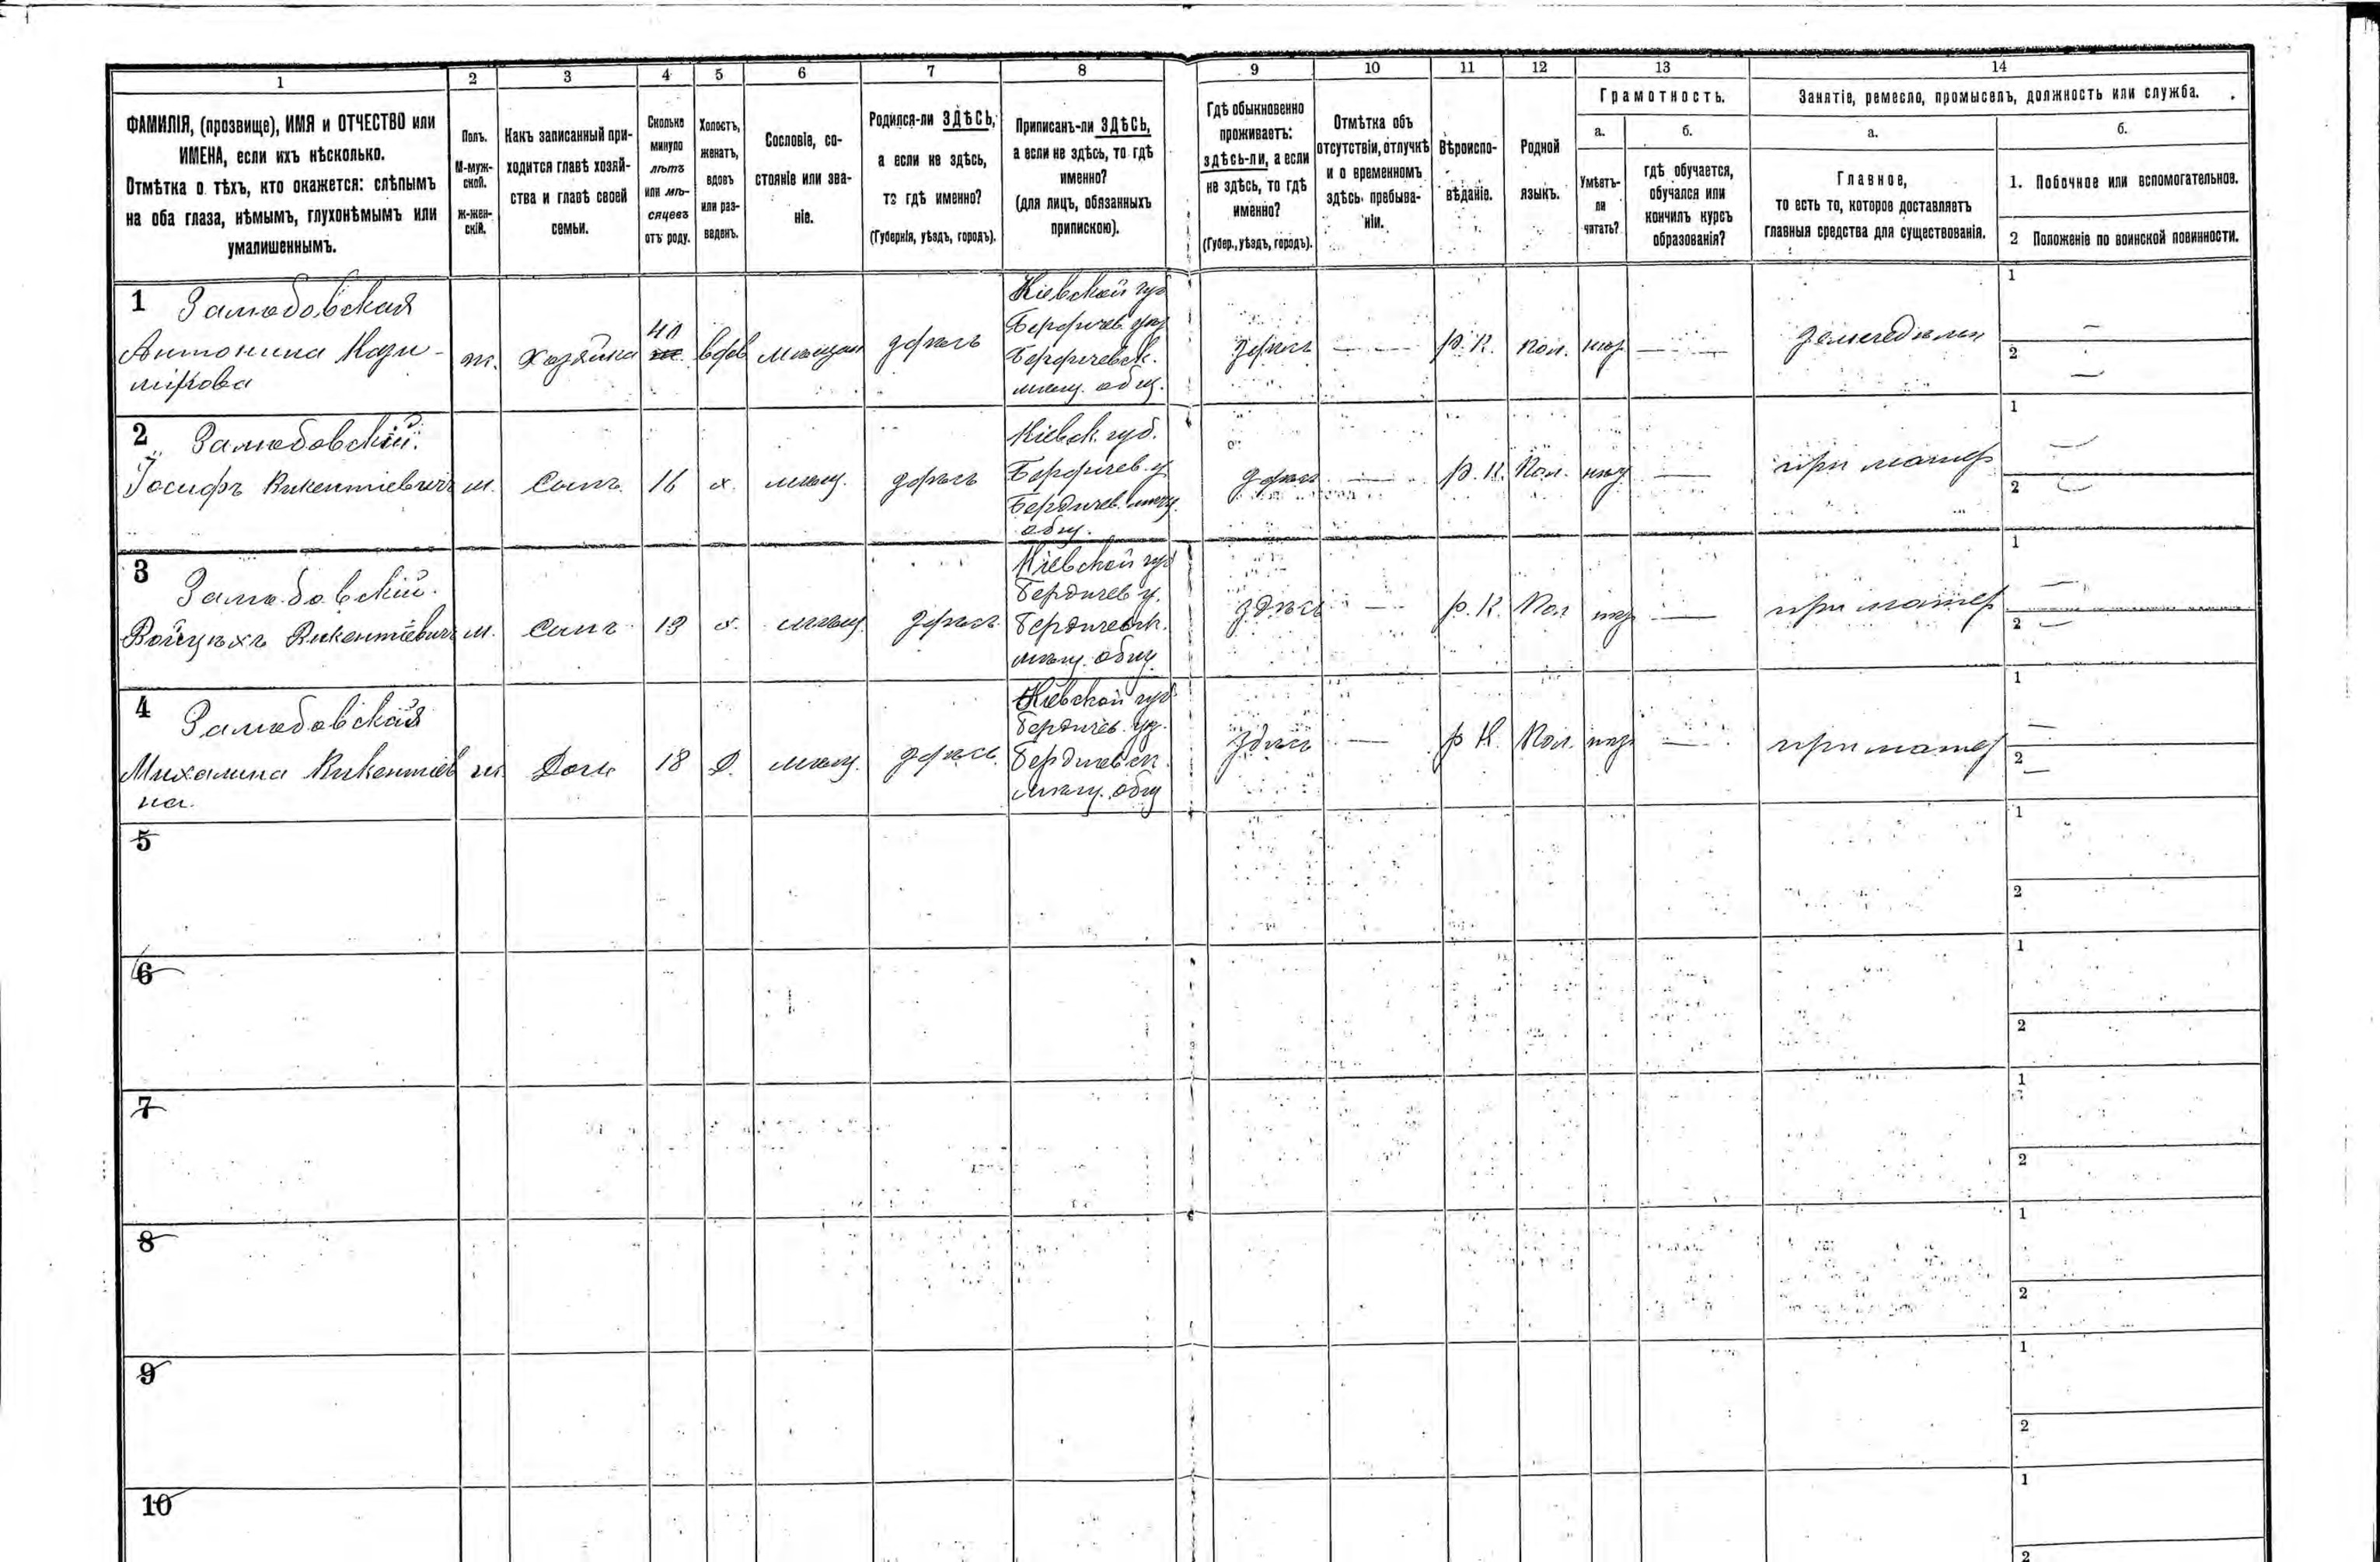 1 2 3 4 5 6 7 8 9 10 11 12 13 14
ФАМИЛІЯ, (прозвище), ИМЯ и ОТЧЕСТВО или
ИМЕНА, если ихъ нѣсколько.
Отмѣтка о тѣхъ, кто окажется: слѣпымъ
на оба глаза, нѣмымъ, глухонѣмымъ или
умалишеннымъ.
Полъ.
М-муж-
ской.
ж-жен-
скій.
Какъ записанный при-
ходится главѣ хозяй-
ства и главѣ своей
семьи.
Сколько
минуло
лѣтъ
или мѣ-
сяцевъ
отъ роду.
Холостъ,
женатъ,
вдовъ
или раз-
веденъ.
Сословіе, со-
стояніе или зва-
ніе.
Родился-ли ЗДѢСЬ,
а если не здѣсь,
то гдѣ именно?
(Губернія, уѣздъ, городъ).
Приписанъ-ли ЗДѢСЬ,
а если не здѣсь, то гдѣ
именно?
(для лицъ, обязанныхъ
припискою).
Гдѣ обыкновенно
проживаетъ:
здѣсь-ли, а если
не здѣсь, то гдѣ
именно?
(Губер., уѣздъ, городъ).
Отмѣтка объ
отсутствіи, отлучкѣ
и о временномъ
здѣсь пребыва-
ніи.
Вѣроиспо-
вѣданіе.
Родной
языкъ.
Грамотность.
а.
Умѣетъ-
ли
читать?
б.
гдѣ обучается,
обучался или
кончилъ курсъ
образованія?
Занятіе, ремесло, промыселъ, должность или служба.
а.
Главное,
то есть то, которое доставляетъ
главныя средства для существованія.
б.
1. Побочное или вспомогательное.
2 Положеніе по воинской повинности.
1 Залюбовская
Антонина Кази-
мірова
ж. Хозяйка 40 вдов мѣщан здѣсь
Кіевской губ
Бердичев. уѣз
Бердичевск.
мѣщ. общ.
здѣсь — р. К. пол. — земледѣлец
1 —
2 —
2 Залюбовскій.
Іосифъ Викентіевичъ
м. Сынъ 16 х. мѣщ. здѣсь
Кіевск. губ.
Бердичев. у.
Бердичев. мѣщ.
общ.
здѣсь — р. К. Пол. — при матер
1 —
2 —
3 Залюбовскій.
Войцѣхъ Викентіевичъ
м. Сынъ 13 х. мѣщ здѣсь
Кіевской губ
Бердичев у.
Бердичевск.
мѣщ. общ
здѣсь — р. К. Пол — при матер
1 —
2 —
4 Залюбовская
Михалина Викентіев
на.
ж. Дочь 18 Д. мѣщ. здѣсь.
Кіевской губ
Бердичев. уѣз.
Бердичевск.
мѣщ. общ
здѣсь — р К. Пол. — при матер
1 —
2 —
5
1
2
6
1
2
7
1
2
8
1
2
9
1
2
10
1
2